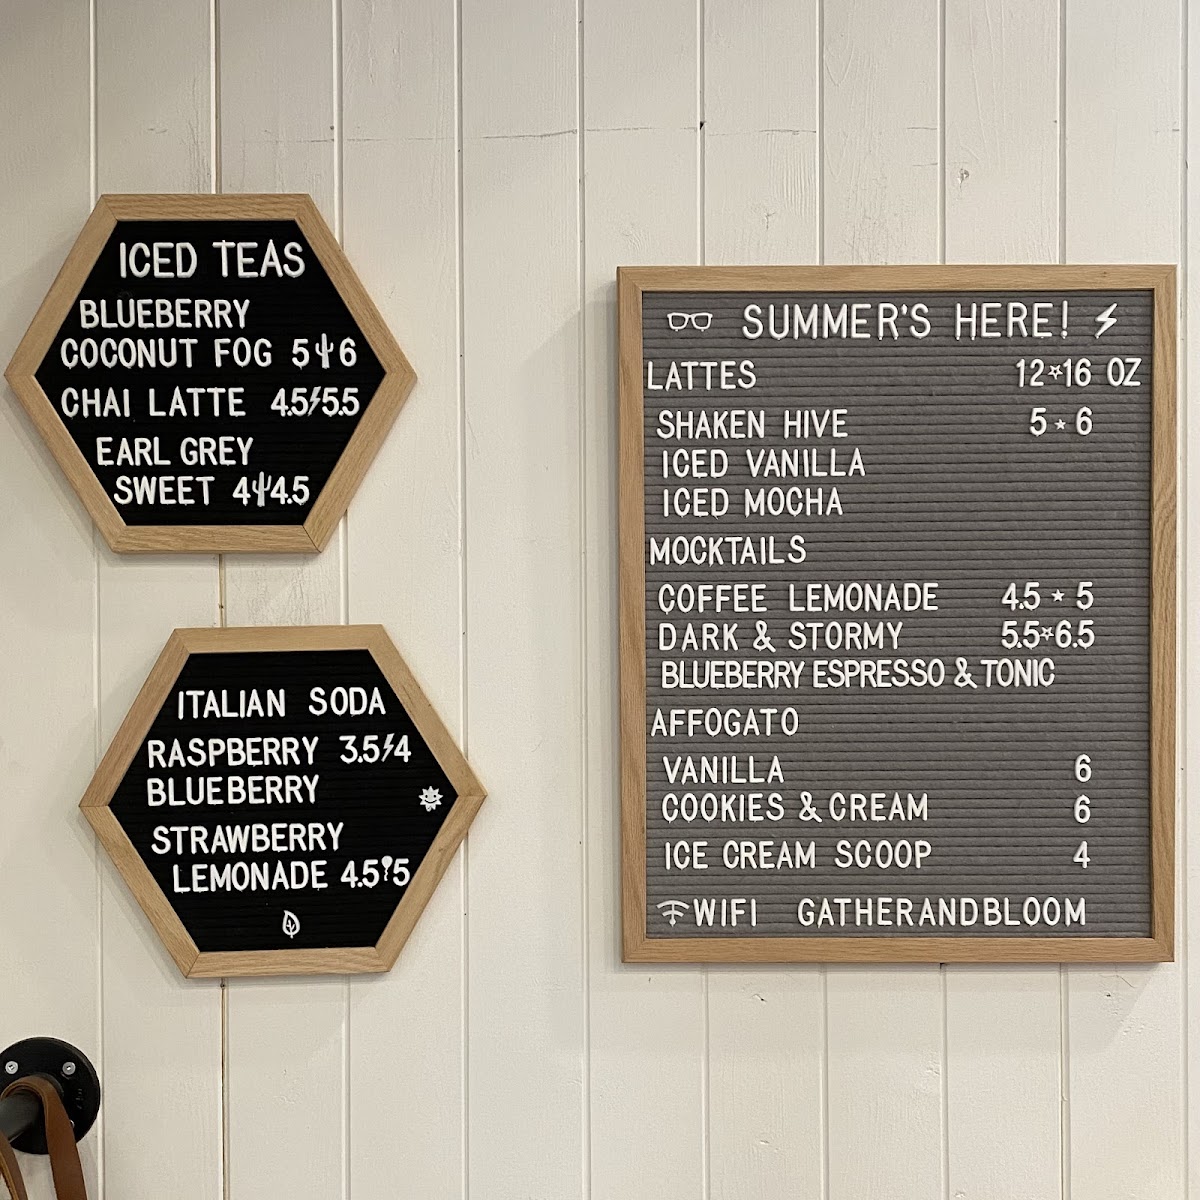 ICED TEAS
BLUEBERRY
COCONUT FOG 5 6
CHAI LATTE 4.5 5.5
EARL GREY
SWEET 4 4.5
ITALIAN SODA
RASPBERRY 3.5 4
BLUEBERRY
STRAWBERRY
LEMONADE 4.5 5
SUMMER'S HERE!
LATTES 12 16 OZ
SHAKEN HIVE 5 6
ICED VANILLA
ICED MOCHA
MOCKTAILS
COFFEE LEMONADE 4.5 5
DARK & STORMY 5.5 6.5
BLUEBERRY ESPRESSO & TONIC
AFFOGATO
VANILLA 6
COOKIES & CREAM 6
ICE CREAM SCOOP 4
WIFI GATHERANDBLOOM